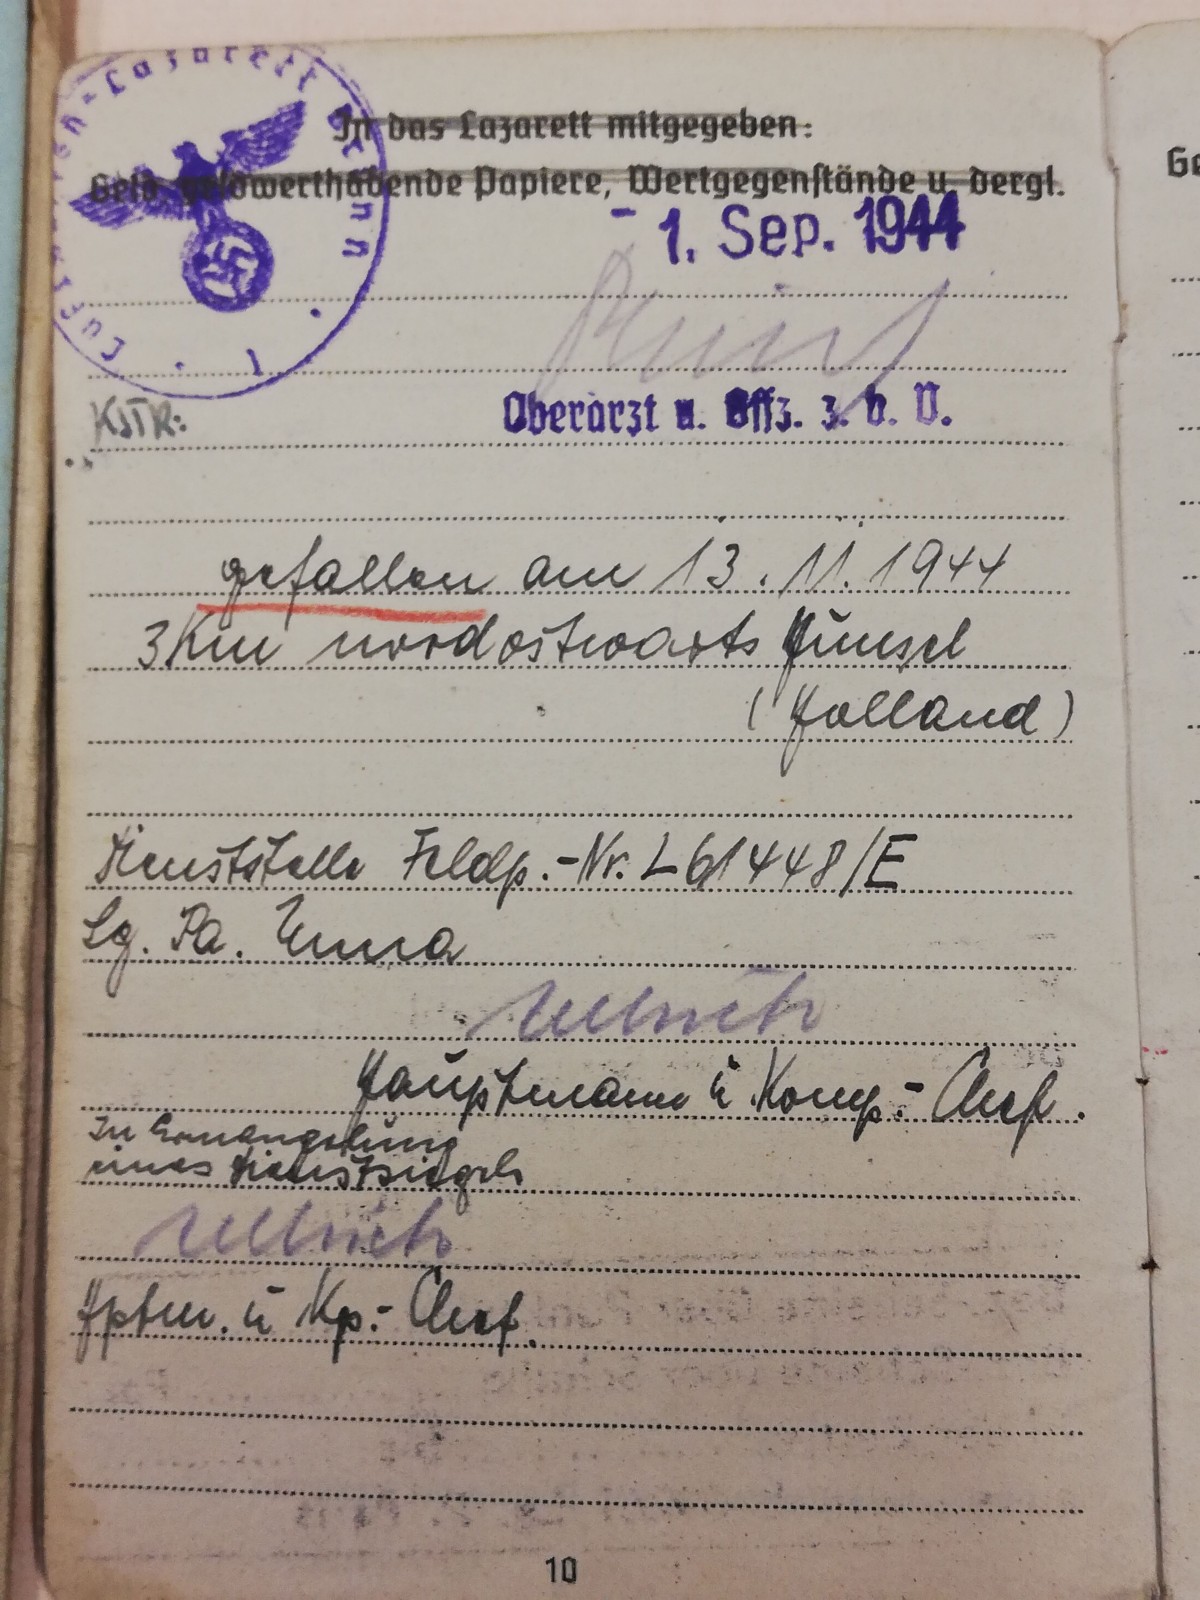 In das Lazarett mitgegeben:
Geld, geldwerthabende Papiere, Wertgegenstände u. dergl.
- 1. Sep. 1944
Oberarzt u. Offz. z. b. V.
KSTR:
gefallen am 13. 11. 1944
3 Km nordostwärts Hunsel
(Holland)
Dienststelle Feldp.-Nr. L 61448/E
Lg. Pa. Unna
Ullrich
Hauptmann ü Komp.- Chef.
In Ermangelung
eines Dienstsiegels
Ullrich
Hptm. ü Kp.- Chef.
10